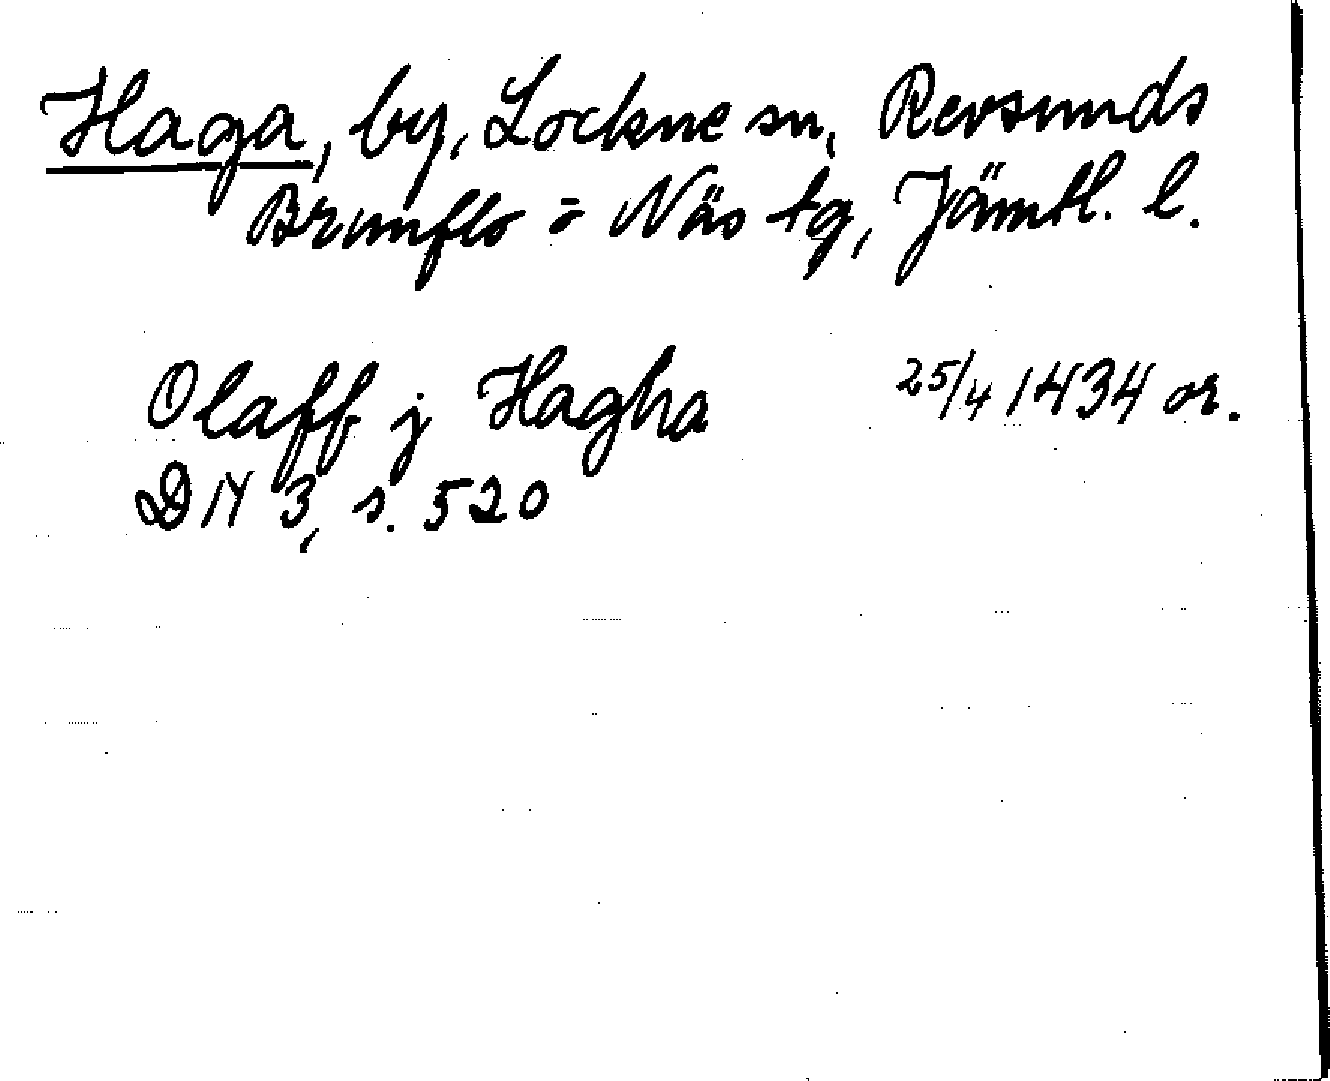 Haga, by, Lockne sn, Revsunds
Brunflo o Näs tg, Jämtl. l.
Olaff j Hagha 25/4 1434 or.
DN 3, s. 520